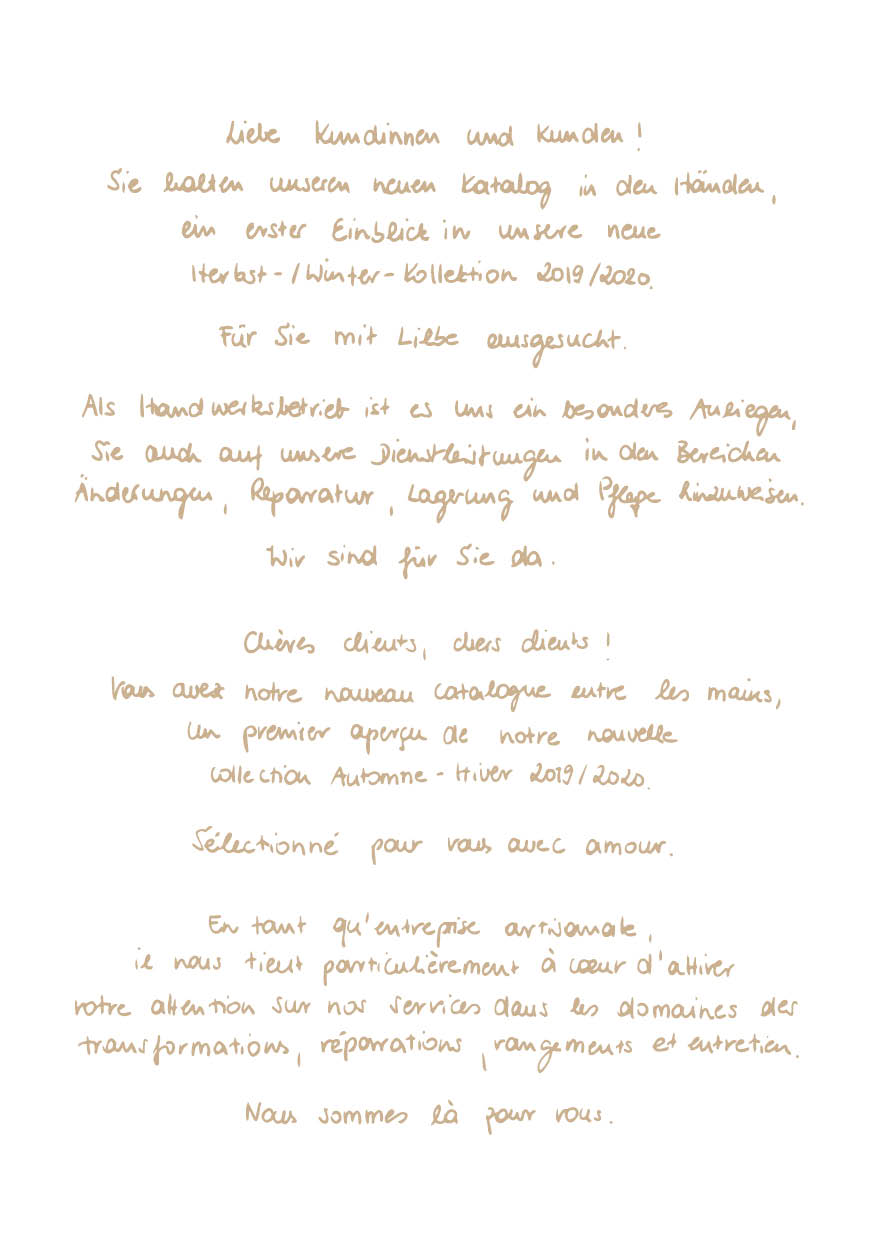 Liebe Kundinnen und Kunden!
Sie halten unseren neuen Katalog in den Händen,
ein erster Einblick in unsere neue
Herbst-/Winter-Kollektion 2019/2020.
Für Sie mit Liebe ausgesucht.
Als Handwerksbetrieb ist es uns ein besonderes Anliegen,
Sie auch auf unsere Dienstleistungen in den Bereichen
Änderungen, Reparatur, Lagerung und Pflege hinzuweisen.
Wir sind für Sie da.
Chères clients, chers clients!
Vous avez notre nouveau catalogue entre les mains,
un premier aperçu de notre nouvelle
collection Automne-Hiver 2019/2020.
Sélectionné pour vous avec amour.
En tant qu'entreprise artisanale,
il nous tient particulièrement à cœur d'attirer
votre attention sur nos services dans les domaines des
transformations, réparations, rangements et entretien.
Nous sommes là pour vous.